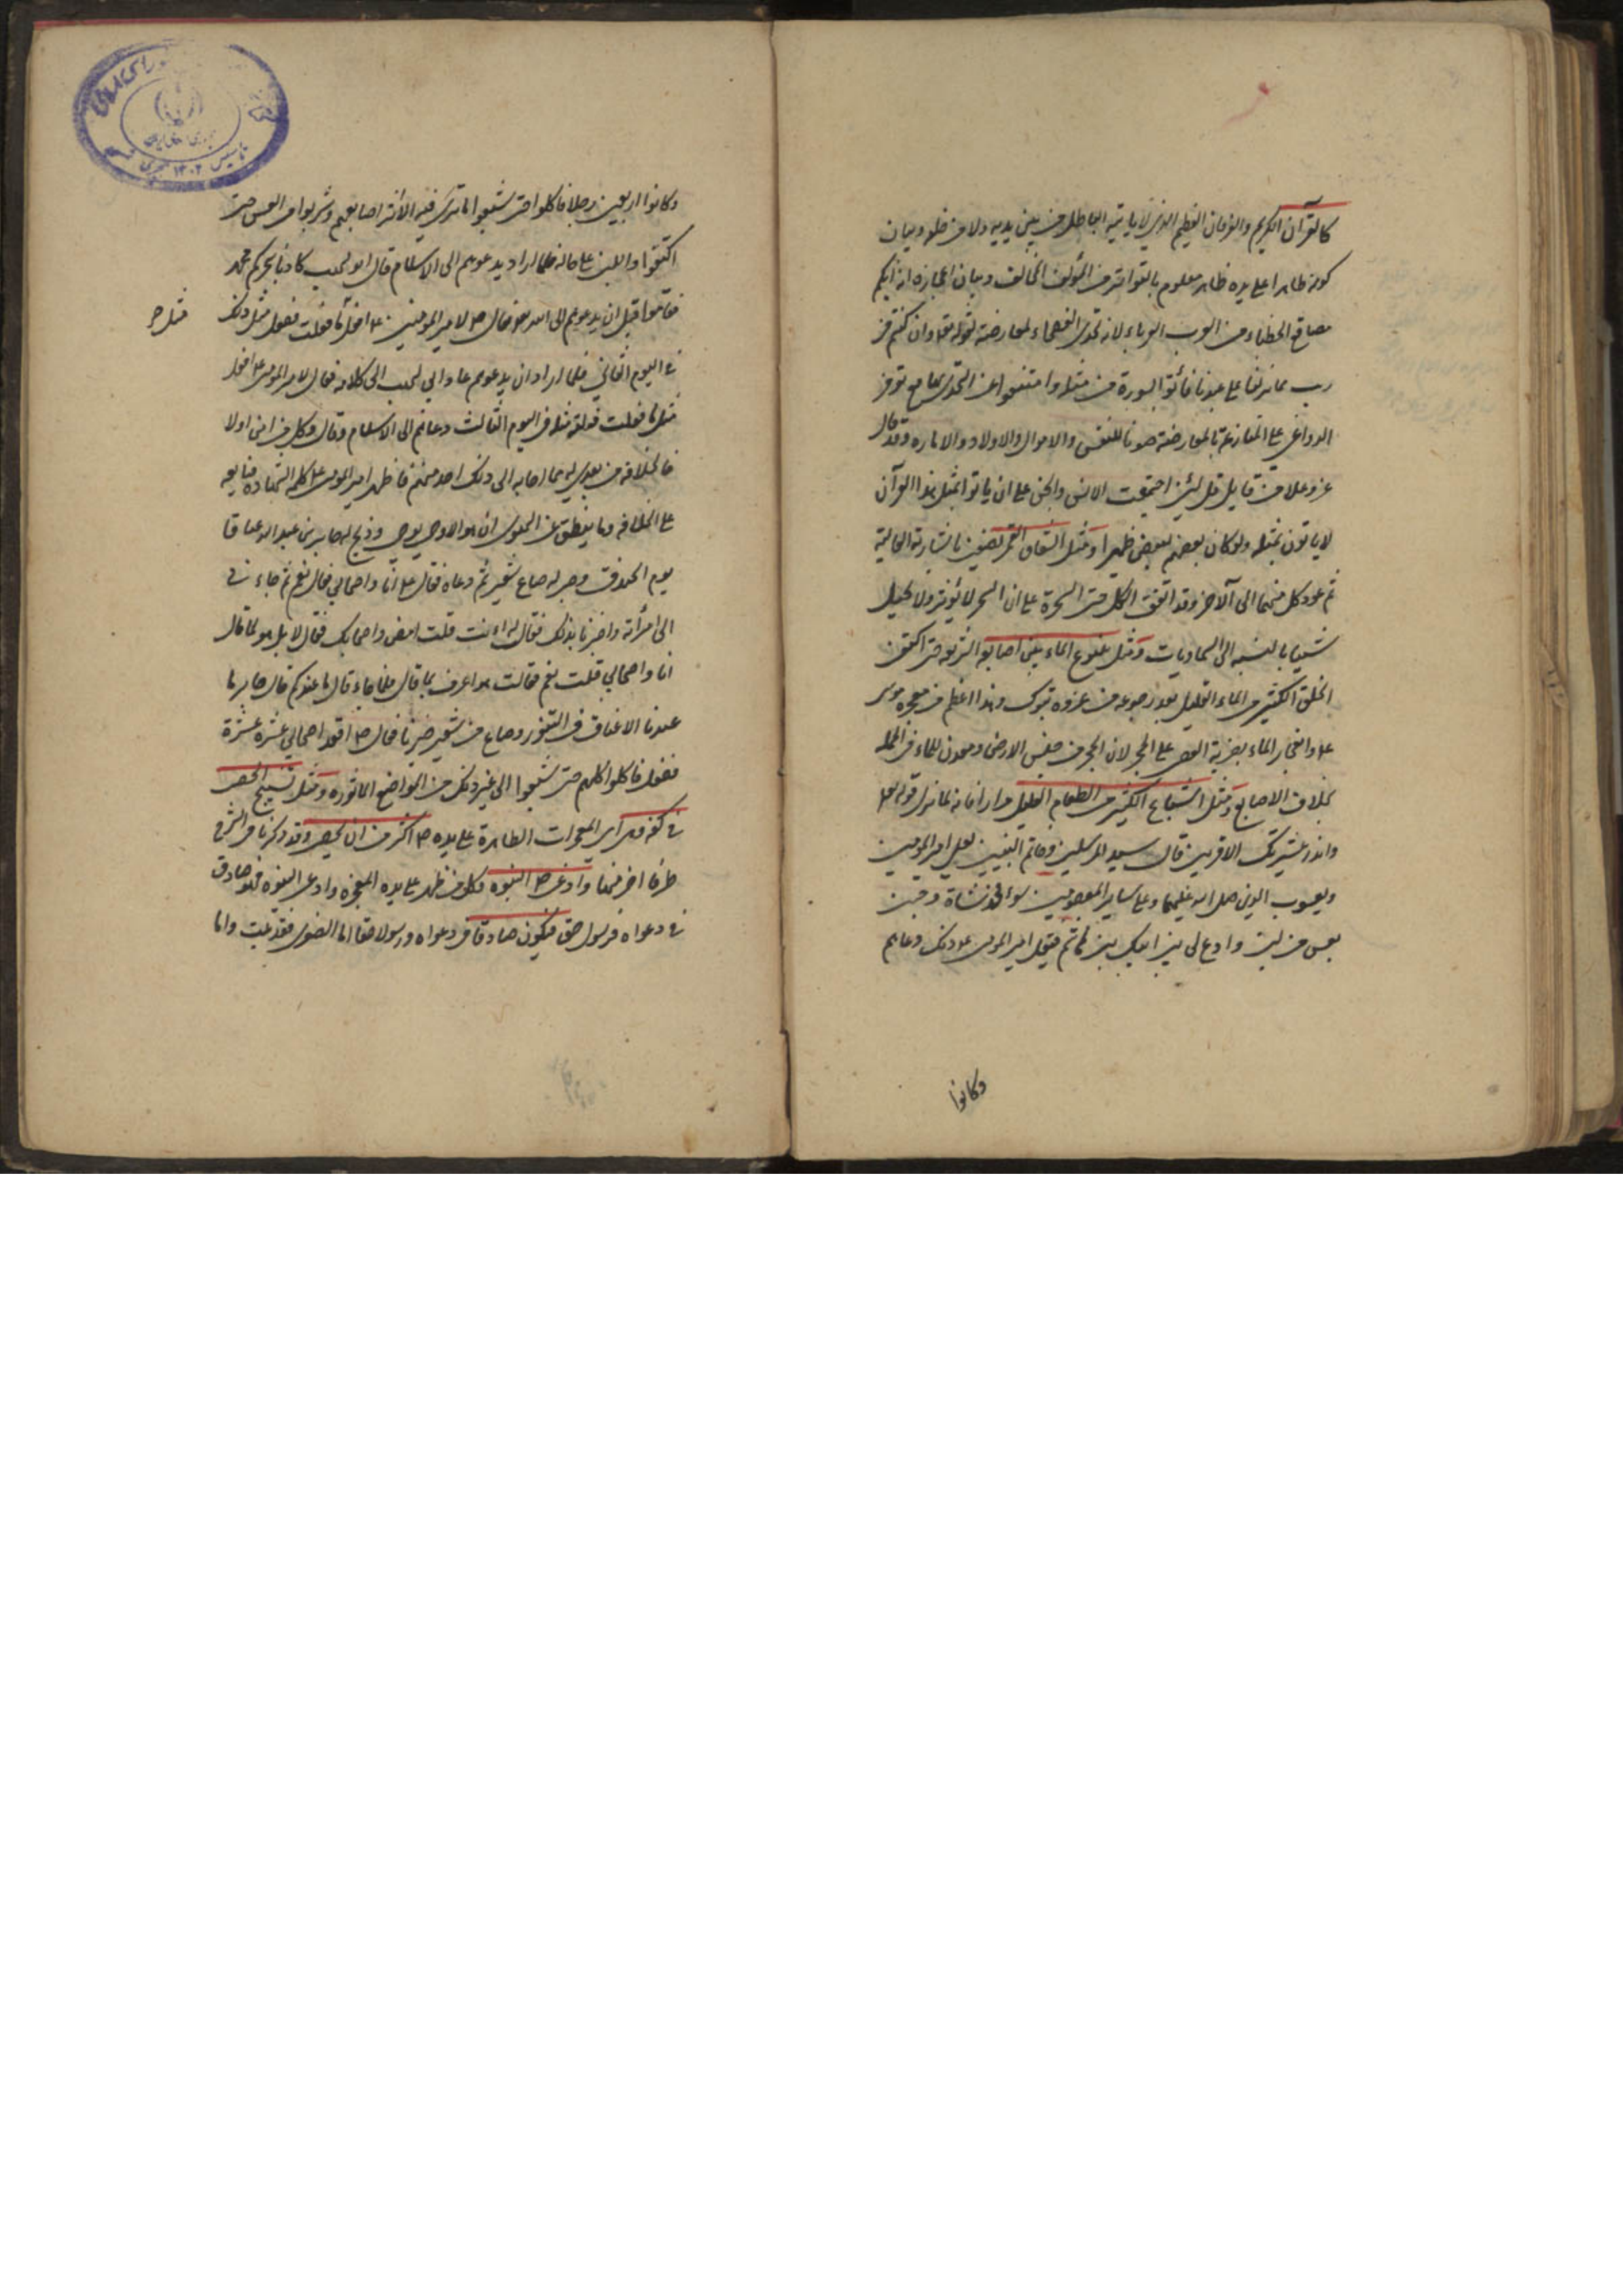 كالقرآن الكريم والفرقان العظيم الذي لا ياتيه الباطل من بين يديه ولا من خلفه وبيان
كونه ظاهرا على يده ظاهر معلوم بالتواتر من المؤلف المخالف وبيان اعجازه انه ابكم
مصاقع الخطباء من العرب العرباء لانه تحدى الفصحاء لمعارضته لقوله تعالى وان كنتم في
ريب مما نزلنا على عبدنا فأتوا بسورة من مثله وامتنعوا عن التحدي بها مع توفر
الدواعي على المنازعة بالمعارضة صونا للنفس والاموال والاولاد والامارة وقد قال
عز وعلا من قايل قل لئن اجتمعت الانس والجن على ان ياتوا بمثل هذا القرآن
لا ياتون بمثله ولو كان بعضهم لبعض ظهيرا ومثل انشقاق القمر نصفين باشارته العالية
ثم عود كل منهما الى الآخر وقد اتفق الكل حتى السحرة على ان السحر لا يؤثر ولا يحيل
شيئا بالنسبه الى السماويات ومثل نبوع الماء بين اصابعه الشريفه حتى اكتفى
الخلق الكثير من الماء القليل بعد رجوعه من غزوه تبوك وهذا اعظم من معجزه موسى
ع وانفجار الماء بضربه العصى على الحجر لان الحجر من جنس الارض ومعدن للماء في الجمله
بخلاف الاصابع ومثل اشباع الكثير من الطعام القليل مرارا فانه لما نزل قوله تعالى
وانذر عشيرتك الاقربين قال سيد المرسلين وخاتم النبيين لعلي امير المومنين
ويعسوب الدين صلى الله عليهما وعلى ساير المعصومين سواء فخذ شاة وجئني
بعس من لبن وادع لي بني ابيك بني هاشم ففعل امير المومنين ع ذلك ودعاهم
وكانوا
وكانوا اربعين رجلا فاكلوا حتى شبعوا ما ترى فيه الا اثر اصابعهم وشربوا من العس حتى
اكتفوا واللبن على حاله فلما اراد يدعوهم الى الاسلام قال ابو لهب كاد ما سحركم محمد
فقاموا قبل ان يدعوهم الى الله تعالى فقال ص لامير المومنين ع افعل ما فعلت ففعل مثل ذلك
في اليوم الثاني فلما اراد ان يدعوهم عاد ابي لهب الى كلامه فقال لامير المومنين ع افعل
مثل ما فعلت ففعل مثله في اليوم الثالث ودعاهم الى الاسلام وقال وكل من امن اولا
فالخلافه من بعدي له فما اجابه الى ذلك احد منهم فاظهر امير المومنين ع كلمه الشهاده فبايعه
على الخلافه وما ينطق عن الهوى ان هو الا وحي يوحى وذبح له جابر بن عبد الله عناقا
يوم الخندق وخبز له صاع شعير ثم دعاه فقال ع انا واصحابي فقال نعم ثم جاء في
الى امرأته واخبرنا بذلك فقال له اء نت قلت امض واصحابك فقال لا بل هو لما قال
انا واصحابي قلت نعم فقالت هو اعرف بما قال فلما جاء قال ما عندكم قال جابر ما
عندنا الا عناق في التنور وصاع من شعير خبزنا فقال ص اقعد اصحابي عشرة عشرة
ففعل فاكلوا كلهم حتى شبعوا الى غير ذلك من المواضع الماثوره ومثل تسبيح الحصى
في كفه الى المعجزات الظاهرة على يده ص اكثر من ان يحصى وقد ذكرنا في الشرح
طرفا اخر منها وادعى ص النبوه وكل من ظهر على يده المعجزه وادعى النبوه فهو صادق
في دعواه فرسول حق فيكون صادقا في دعواه ورسولا حقا اما الصغرى فقد ثبت واما